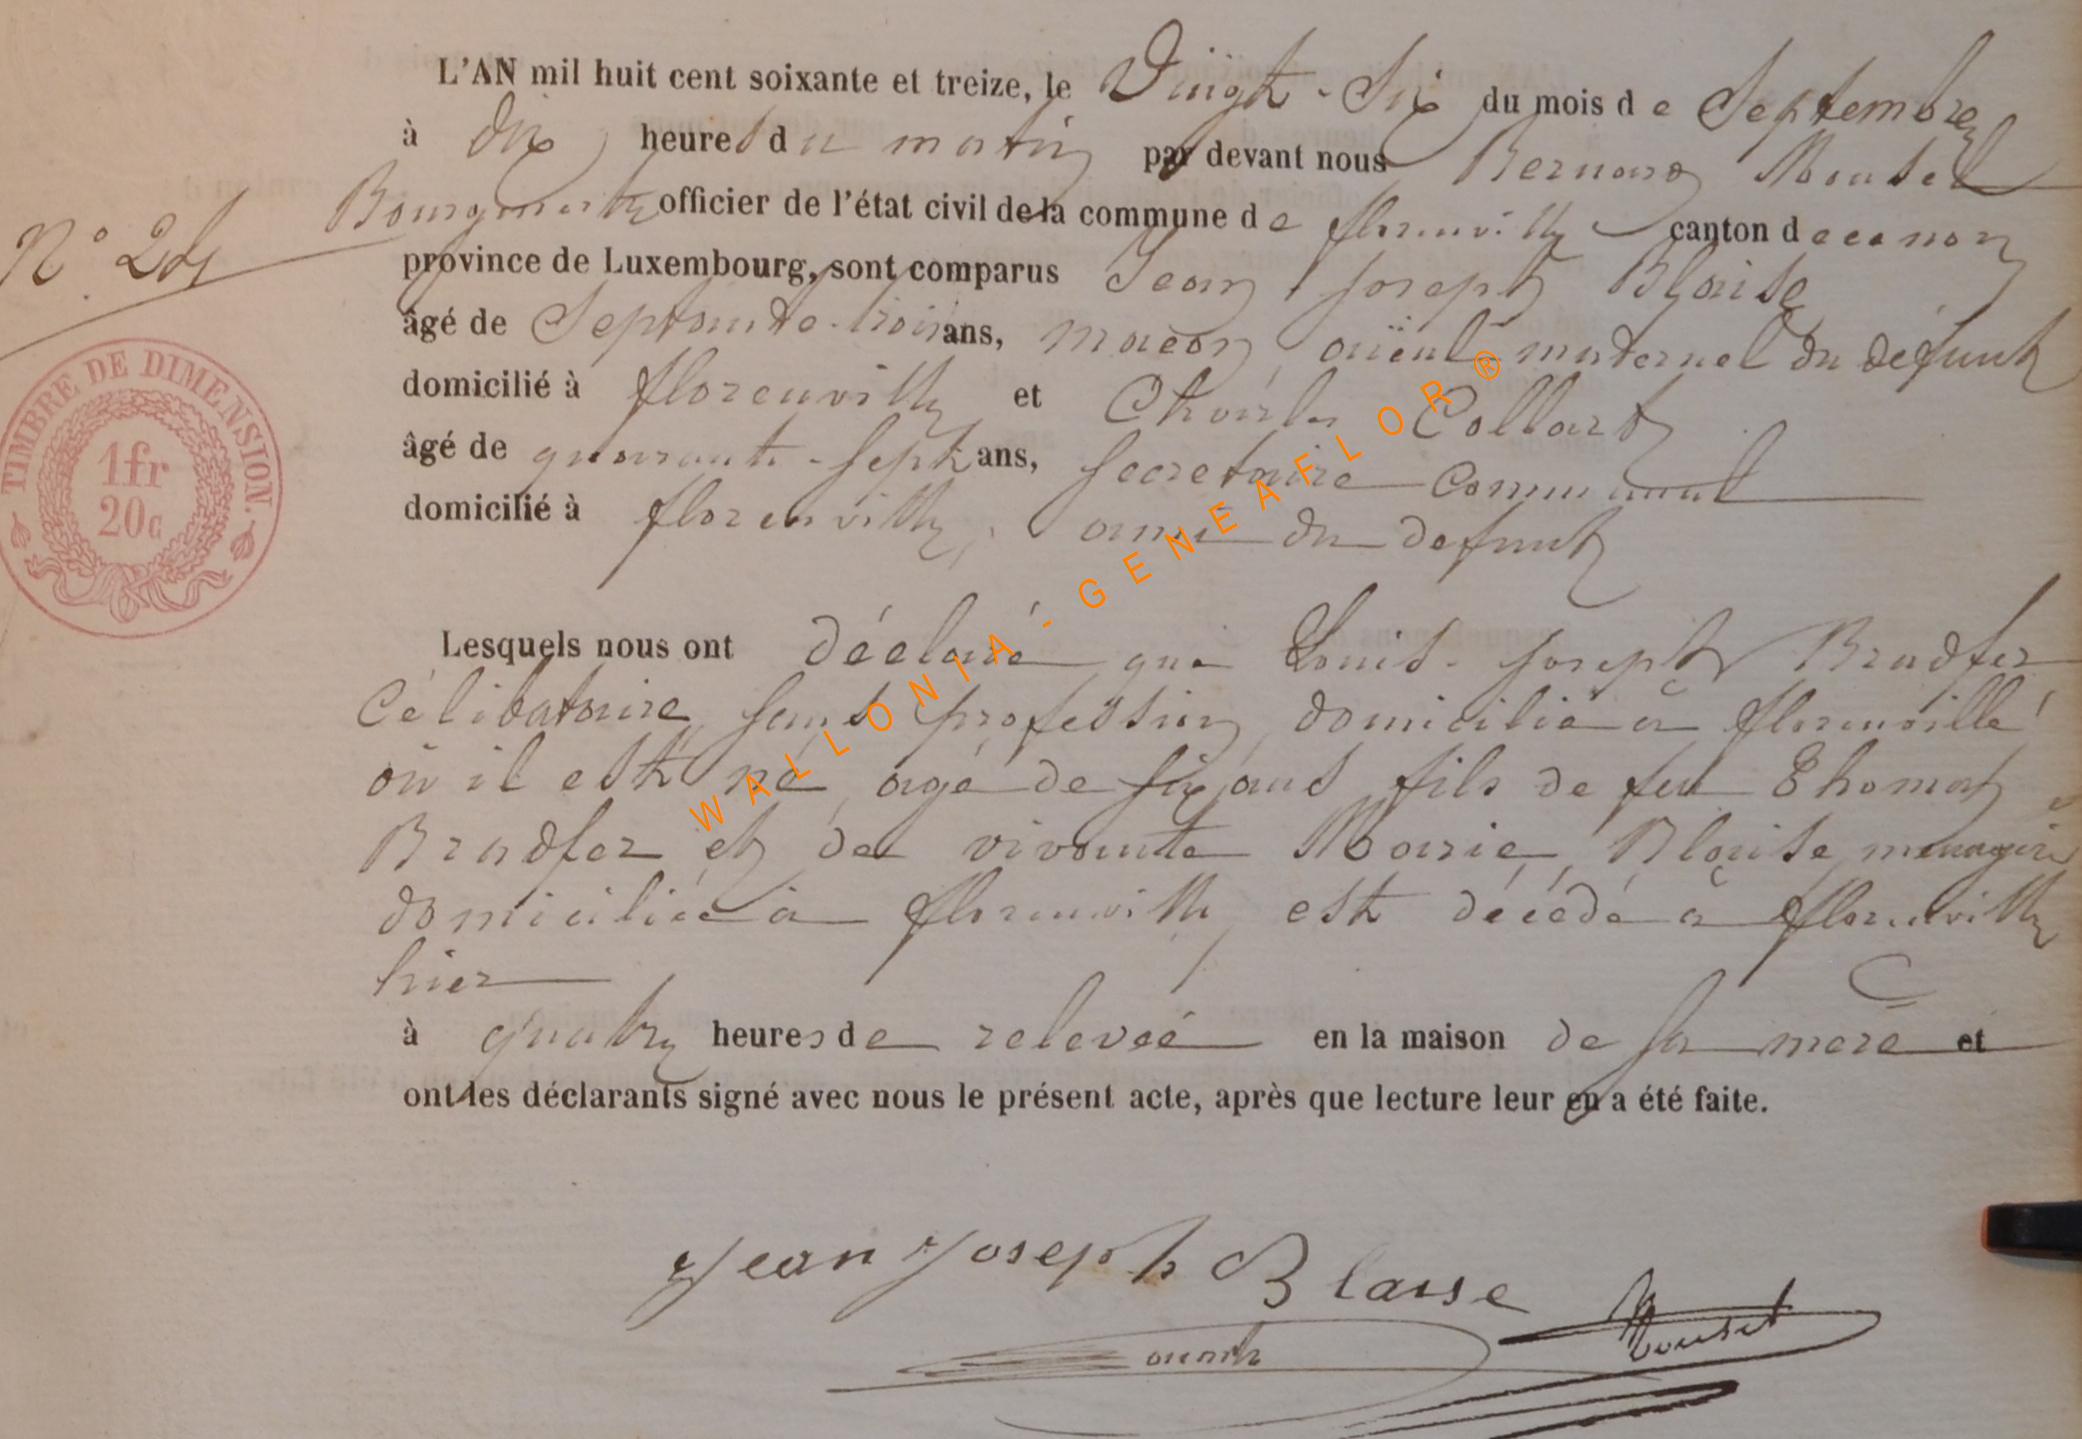 L'AN mil huit cent soixante et treize, le Vingt-Six du mois de Septembre
à dix heures du matin par devant nous Bernard Mousel
Bourgmestre officier de l'état civil de la commune de florenville canton de ce nom
N° 24
province de Luxembourg, sont comparus Jean Joseph Blaise
âgé de Septante-trois ans, macon, aïeul maternel du défunt
domicilié à florenville et Charles Collart
âgé de quarante-sept ans, secretaire communal
domicilié à florenville, ami du defunt
TIMBRE DE DIMENSION.
1fr
20c
Lesquels nous ont déclaré que Louis-Joseph Bradfer
Célibataire, sans profession, domicilié à florenville
où il est né, agé de six ans fils de feu Thomas
Bradfer et de vivante Marie Blaise, menagère
domiciliée à florenville, est décédé à florenville
hier
à quatre heures de relevée en la maison de sa mère et
ont les déclarants signé avec nous le présent acte, après que lecture leur en a été faite.
Jean Joseph Blaise
WALLONIA-GENEAFLOR®